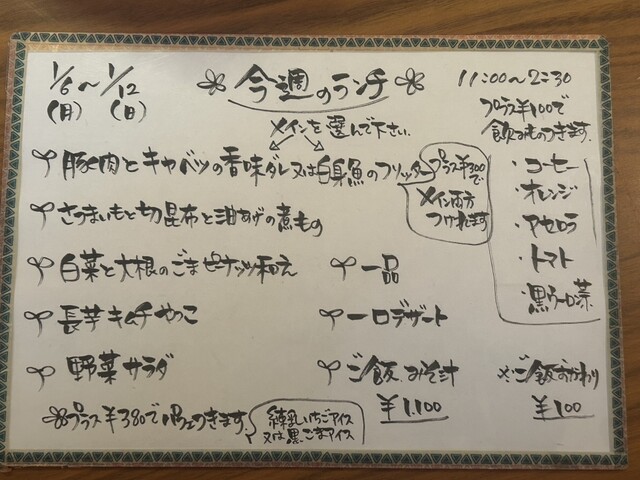 1/6〜1/12
(月) (日)
今週のランチ
11:00〜2:30
プラス¥100で
飲みものつきます。
・コーヒー
・オレンジ
・アセロラ
・トマト
・黒ウーロン茶
メインを選んで下さい。
豚肉とキャベツの香味ダレ又は白身魚のフリッター
プラス¥300で
メイン両方
つけれます
さつまいもと切昆布と油あげの煮もの
白菜と大根のごまピーナッツ和え
一品
長芋キムチやっこ
一口デザート
野菜サラダ
ご飯、みそ汁
¥1,100
※ご飯おかわり
¥100
プラス¥380でパフェつきます。
練乳いちごアイス
又は黒ごまアイス